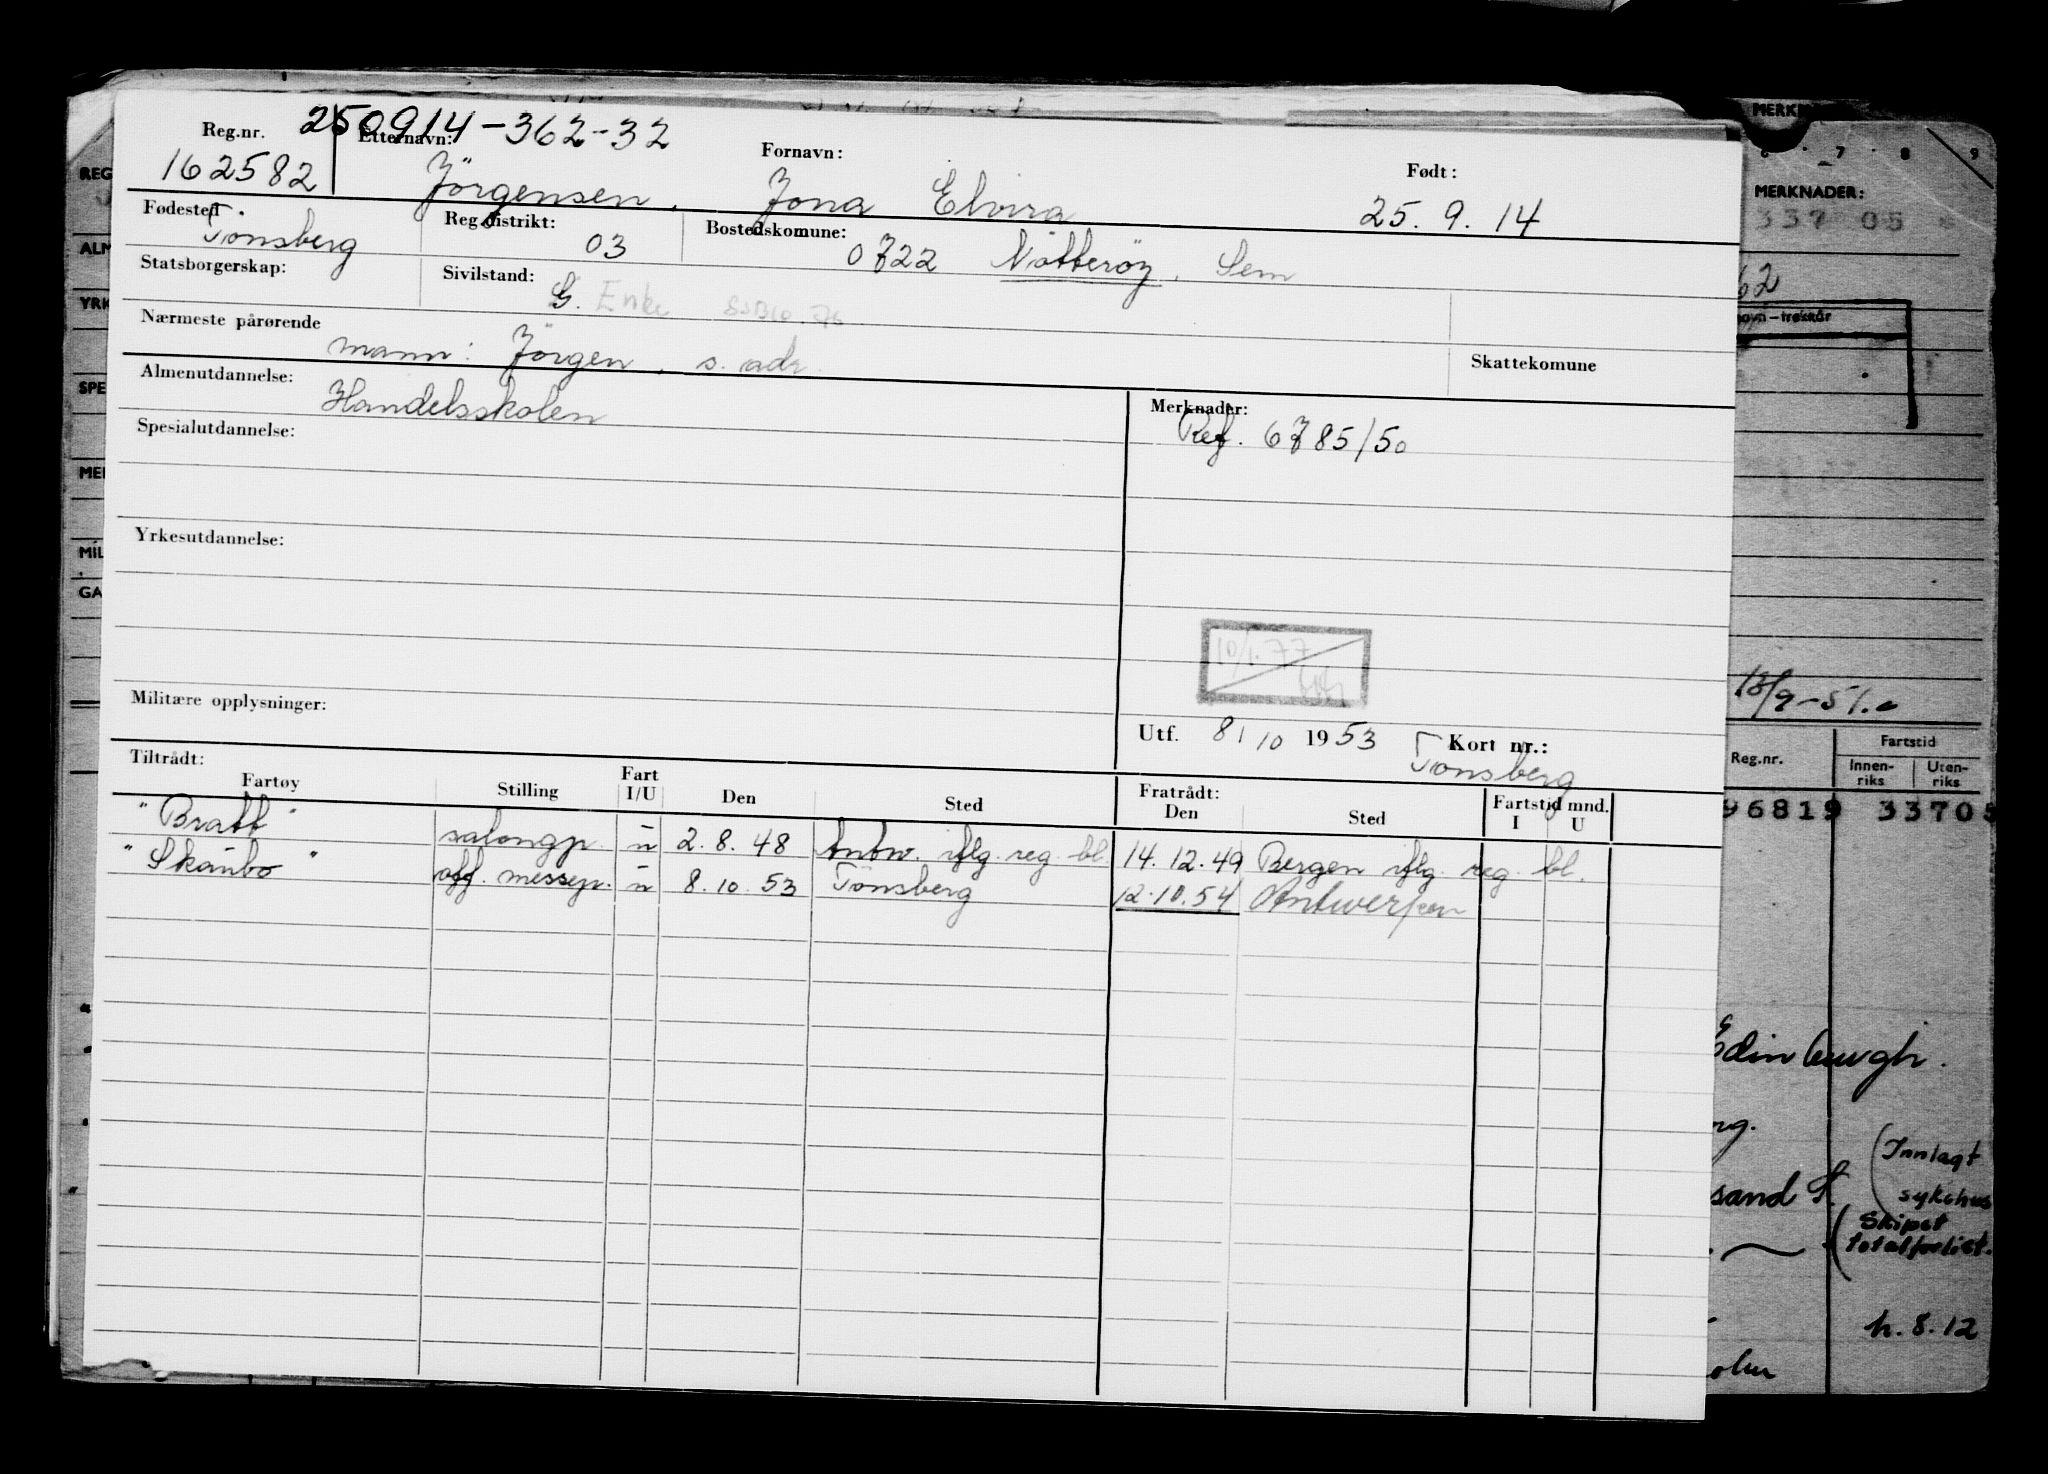 250914-362-32
Reg.nr. Etternavn: Fornavn: Født:
162582 Jörgensen, Jona Elvira 25.9.14
Fødested Reg.distrikt: Bostedskomune:
Tönsberg 03 0722 Nötteröy, Sem
Statsborgerskap: Sivilstand:
G. Enke
Nærmeste pårørende
mann: Jörgen, s. adr. Skattekomune
Almenutdannelse: Merknader:
Handelsskolen Ref. 6785/50
Spesialutdannelse:
Yrkesutdannelse:
10/1.77
Militære opplysninger:
Utf. 8/10 1953 Kort nr.:
Tönsberg
Tiltrådt: Fratrådt:
Fartøy Stilling Fart I/U Den Sted Den Sted Fartstid mnd. I U
"Bratt" salongp. u 2.8.48 Antw. iflg. reg. bl. 14.12.49 Bergen iflg. reg. bl.
"Skaubo" off. messep. u 8.10.53 Tönsberg 12.10.54 Antwerpen
REG
ALM
YRK
SPE
MER
MIL
GA
MERKN
6 7 8 9
MERKNADER:
337 05
62
13/9-51.
Reg.nr. Fartstid
Innen-riks Uten-riks
96819 33705
Edinburgh.
rg.
sand S. (Innlagt
sykehus
(Skipet
totalforlist.
h. 8.12
olm